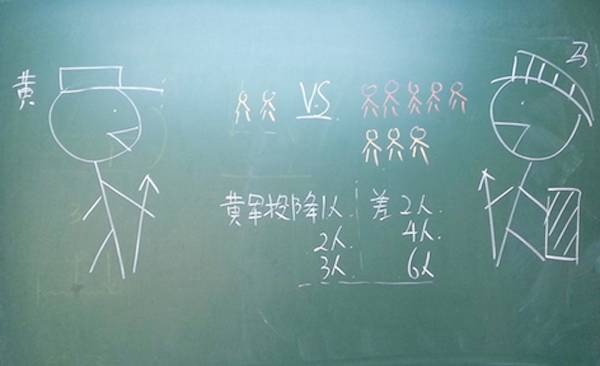 黄
马
VS
黄军投降1人. 差2人.
2人. 4人.
3人 6人